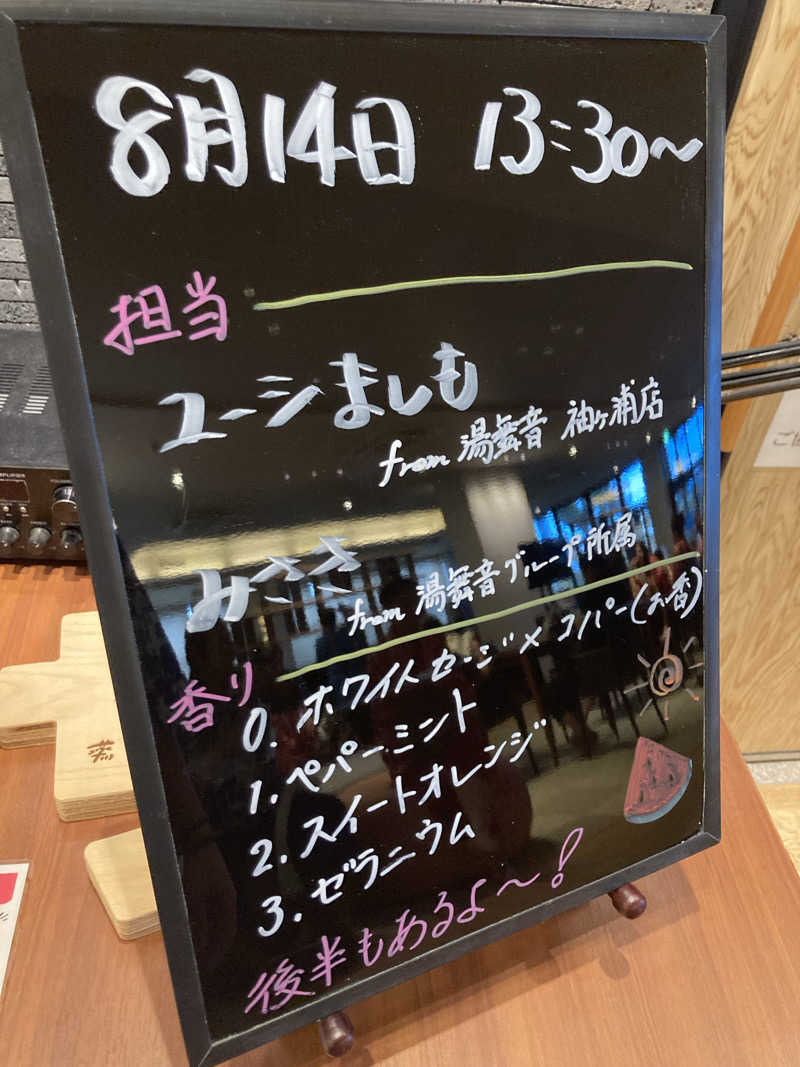 8月14日 13:30〜
担当
ユーシましも
from 湯舞音 袖ヶ浦店
みささ
from 湯舞音グループ所属
香り
0. ホワイトセージ×コパー(お香)
1. ペパーミント
2. スイートオレンジ
3. ゼラニウム
後半もあるよ〜!